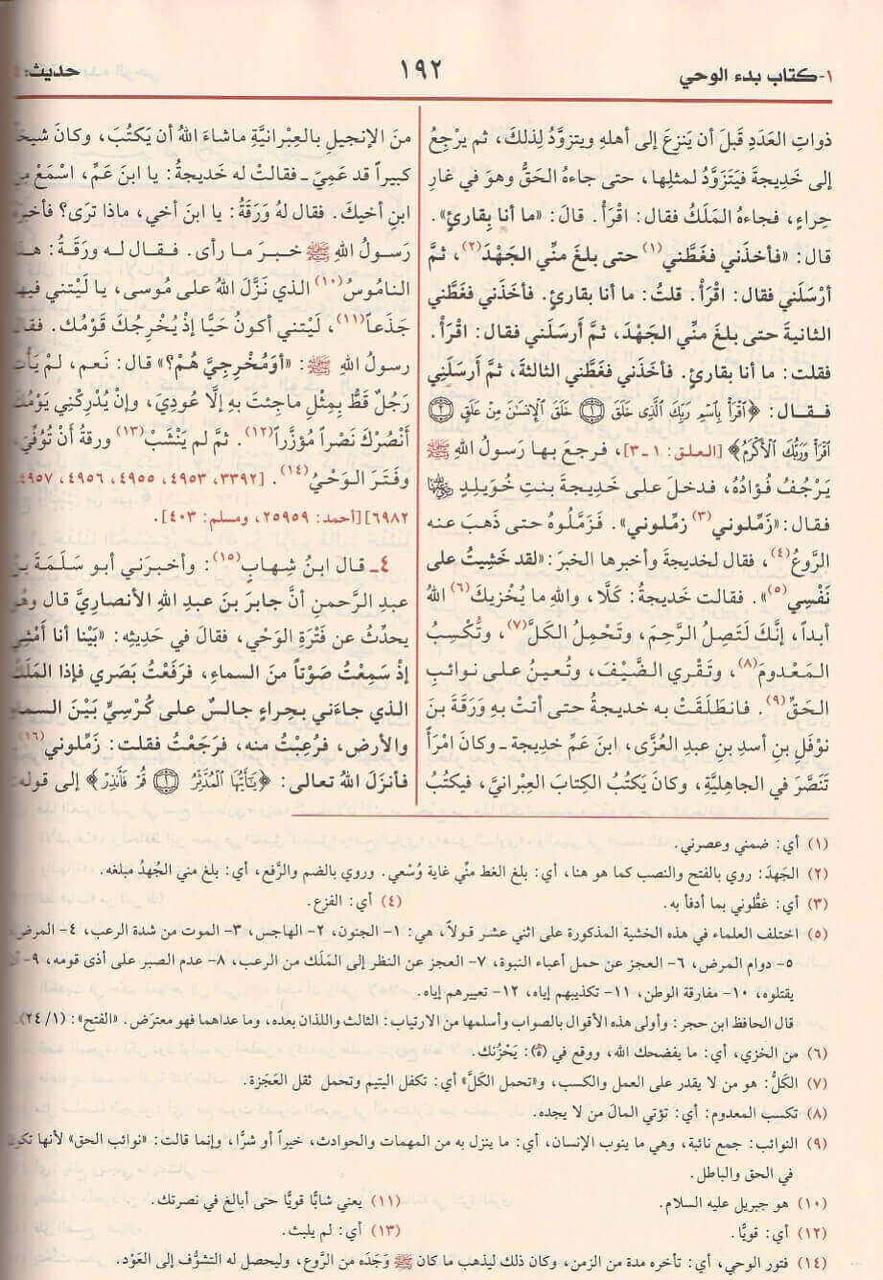 ١- كتاب بدء الوحي
١٩٢
حديث:
ذواتِ العَدَدِ قَبلَ أن يَنزِعَ إلى أهلهِ ويتزوَّدُ لِذلكَ، ثم يرْجِعُ
إلى خَديجةَ فيَتَزوَّدُ لمثلِها، حتى جاءهُ الحَقُّ وهوَ في غارِ
حِراءٍ، فجاءهُ المَلَكُ فقال: اقْرَأْ. قالَ: «ما أنا بِقارئٍ».
قال: «فأخذَني فغَطَّني(١) حتى بلغَ منِّي الجَهْدَ(٢)، ثمَّ
أرْسَلَني فقال: اقْرَأْ. قلتُ: ما أنا بقارئٍ. فأخذَني فغطَّني
الثانيةَ حتى بلغَ منِّي الجَهْدَ، ثمَّ أرسلَني فقال: اقْرَأْ.
فقلت: ما أنا بقارئٍ. فأخذَني فغَطَّني الثالثةَ، ثمَّ أرسَلَني
فقال: ﴿ٱقْرَأْ بِٱسْمِ رَبِّكَ ٱلَّذِى خَلَقَ ۝١ خَلَقَ ٱلْإِنسَٰنَ مِنْ عَلَقٍ ۝٢
ٱقْرَأْ وَرَبُّكَ ٱلْأَكْرَمُ﴾ [العلق: ١-٣]، فرجعَ بها رَسولُ اللهِ ﷺ
يَرْجُفُ فُؤادُهُ، فدخلَ على خَديجةَ بنتِ خُوَيلِدٍ
فقال: «زَمِّلوني(٣) زمِّلوني». فزَمَّلوهُ حتى ذَهبَ عنه
الرَّوعُ(٤)، فقال لخديجةَ وأخبرها الخبرَ: «لقد خَشِيتُ على
نَفْسِي(٥)». فقالت خَديجةُ: كَلَّا، واللهِ ما يُخْزيكَ(٦) اللهُ
أبداً، إنَّكَ لَتَصِلُ الرَّحِمَ، وتَحْمِلُ الكَلَّ(٧)، وتُكْسِبُ
المَعْدومَ(٨)، وتَقْري الضَّيْفَ، وتُعينُ على نوائبِ
الحَقِّ(٩). فانطلَقَتْ به خديجةُ حتى أتتْ بهِ وَرَقَةَ بنَ
نوْفَلِ بنِ أسدِ بنِ عبدِ العُزَّى، ابنَ عَمِّ خديجةَ - وكان امْرَأً
تَنَصَّرَ في الجاهليَّةِ، وكانَ يَكتُبُ الكِتابَ العِبرانيَّ، فيكتُبُ
منَ الإنجيلِ بالعِبْرانيَّةِ ماشاءَ اللهُ أن يَكتُبَ، وكانَ شيخاً
كبيراً قد عَمِيَ - فقالتْ له خديجةُ: يا ابنَ عَمِّ، اسْمَعْ
ابنِ أخيكَ. فقال لهُ وَرَقةُ: يا ابنَ أخي، ماذا تَرى؟ فأخبرَهُ
رَسولُ اللهِ ﷺ خبرَ ما رأى. فقال له ورقةُ: هذا
النامُوسُ(١٠) الذي نَزَّلَ اللهُ على مُوسى، يا لَيْتَني فيها
جَذَعاً(١١)، لَيْتَني أكونُ حَيًّا إذْ يُخْرِجُكَ قَوْمُكَ. فقال
رسولُ اللهِ ﷺ: «أوَمُخْرِجِيَّ هُمْ؟» قال: نَعم، لمْ يَأتِ
رَجُلٌ قَطُّ بِمِثلِ ماجِئتَ بهِ إلَّا عُودِيَ، وإنْ يُدْرِكْني يَوْمُكَ
أنْصُرْكَ نَصْراً مُؤزَّراً(١٢). ثمَّ لم يَنْشَبْ(١٣) ورقةُ أنْ تُوُفِّيَ،
وفتَرَ الوَحْيُ(١٤). [٣٣٩٢، ٤٩٥٣، ٤٩٥٥، ٤٩٥٦، ٤٩٥٧،
٦٩٨٢][أحمد: ٢٥٩٥٩، ومسلم: ٤٠٣].
٤- قال ابنُ شِهابٍ(١٥): وأخبرَني أبو سَلَمَةَ بنُ
عبدِ الرَّحمنِ أنَّ جابرَ بنَ عبدِ اللهِ الأنصاريَّ قال وهُوَ
يحدِّثُ عن فَتْرَةِ الوَحْي، فقالَ في حَديثِهِ: «بَيْنا أنا أَمْشِي
إذْ سَمِعْتُ صَوْتاً منَ السماءِ، فرَفَعْتُ بَصَري فإذا المَلَكُ
الذي جاءَني بحِراءٍ جالسٌ على كُرْسِيٍّ بَيْنَ السماءِ
والأرض، فرُعِبْتُ منه، فرَجَعْتُ فقلت: زَمِّلوني(١٦)
فأنزلَ اللهُ تعالى: ﴿يَٰٓأَيُّهَا ٱلْمُدَّثِّرُ ۝١ قُمْ فَأَنذِرْ﴾ إلى قوله:
(١) أي: ضمني وعصرني.
(٢) الجَهدَ: روي بالفتح والنصب كما هو هنا، أي: بلغ الغط منّي غاية وُسْعي. وروي بالضم والرَّفع، أي: بلغ مني الجُهدُ مبلغه.
(٣) أي: غطُّوني بما أدفأ به.
(٤) أي: الفزع.
(٥) اختلف العلماء في هذه الخشية المذكورة على اثني عشر قولاً، هي: ١- الجنون، ٢- الهاجس، ٣- الموت من شدة الرعب، ٤- المرض،
٥- دوام المرض، ٦- العجز عن حمل أعباء النبوة، ٧- العجز عن النظر إلى المَلَك من الرعب، ٨- عدم الصبر على أذى قومه، ٩-
يقتلوه، ١٠- مفارقة الوطن، ١١- تكذيبهم إياه، ١٢- تعييرهم إياه.
قال الحافظ ابن حجر: وأولى هذه الأقوال بالصواب وأسلمها من الارتياب: الثالث واللذان بعده، وما عداهما فهو معترَض. «الفتح»: (١/ ٢٤).
(٦) من الخزي، أي: ما يفضحك الله، ووقع في (ه): يَحْزُنك.
(٧) الكَلُّ: هو من لا يقدر على العمل والكسب، و«تحمل الكَلَّ» أي: تكفل اليتيم وتحمل ثقل العَجَزة.
(٨) تكسب المعدوم: أي: تؤتي المالَ من لا يجده.
(٩) النوائب: جمع نائبة، وهي ما ينوب الإنسان، أي: ما ينزل به من المهمات والحوادث، خيراً أو شرًّا، وإنما قالت: «نوائب الحق» لأنها تكون
في الحق والباطل.
(١٠) هو جبريل عليه السلام.
(١١) يعني شابًّا قويًّا حتى أبالغ في نصرتك.
(١٢) أي: قويًّا.
(١٣) أي: لم يلبث.
(١٤) فتور الوحي، أي: تأخره مدة من الزمن، وكان ذلك ليذهب ما كان ﷺ وَجَدَه من الرَّوع، وليحصل له التشوُّف إلى العَوْد.